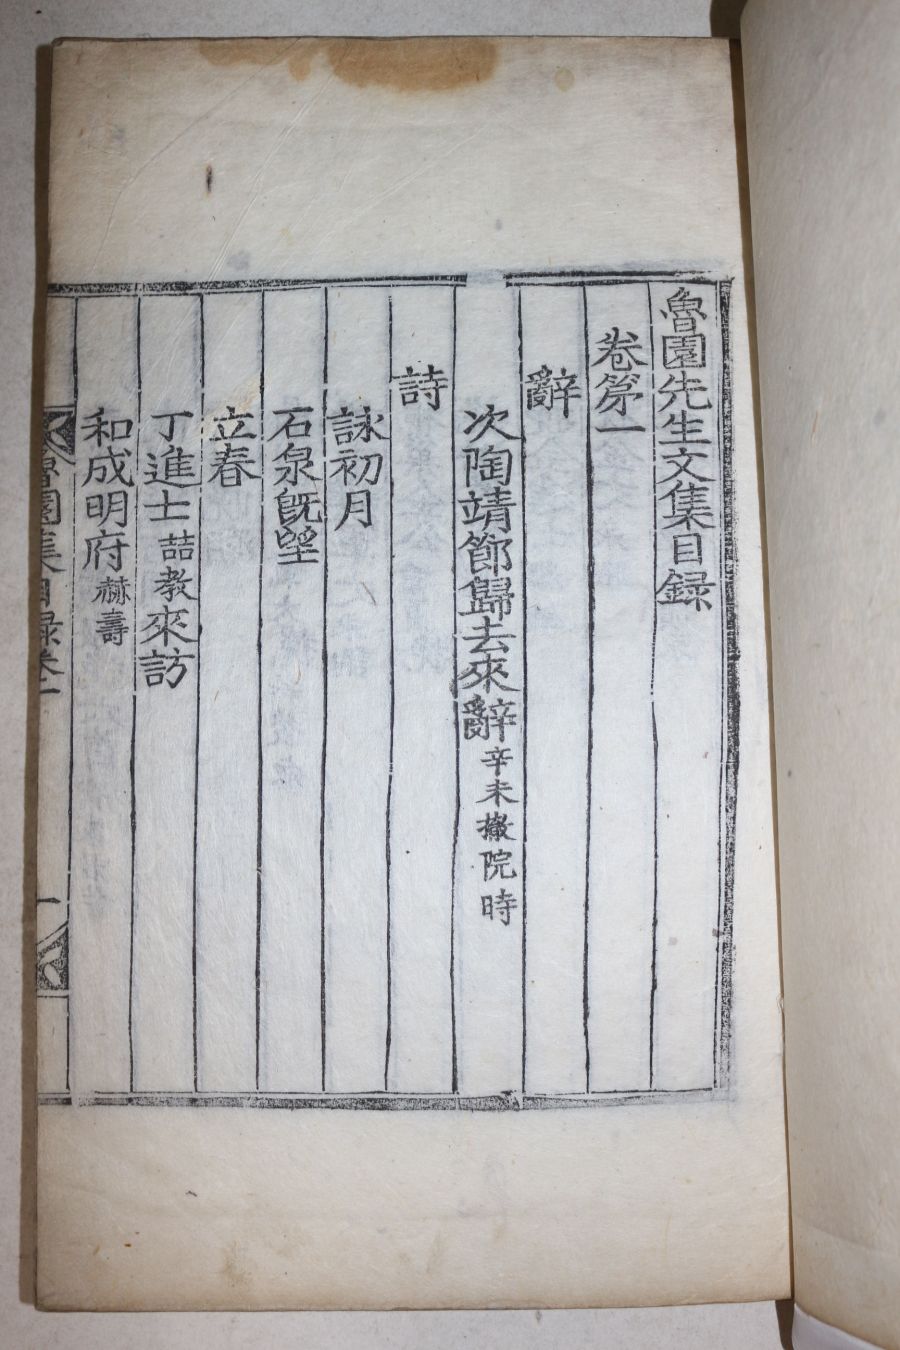 魯園先生文集目録
卷第一
辭
次陶靖節歸去來辭辛未撤院時
詩
詠初月
石泉旣望
立春
丁進士喆敎來訪
和成明府赫壽
魯園集目録卷一 一